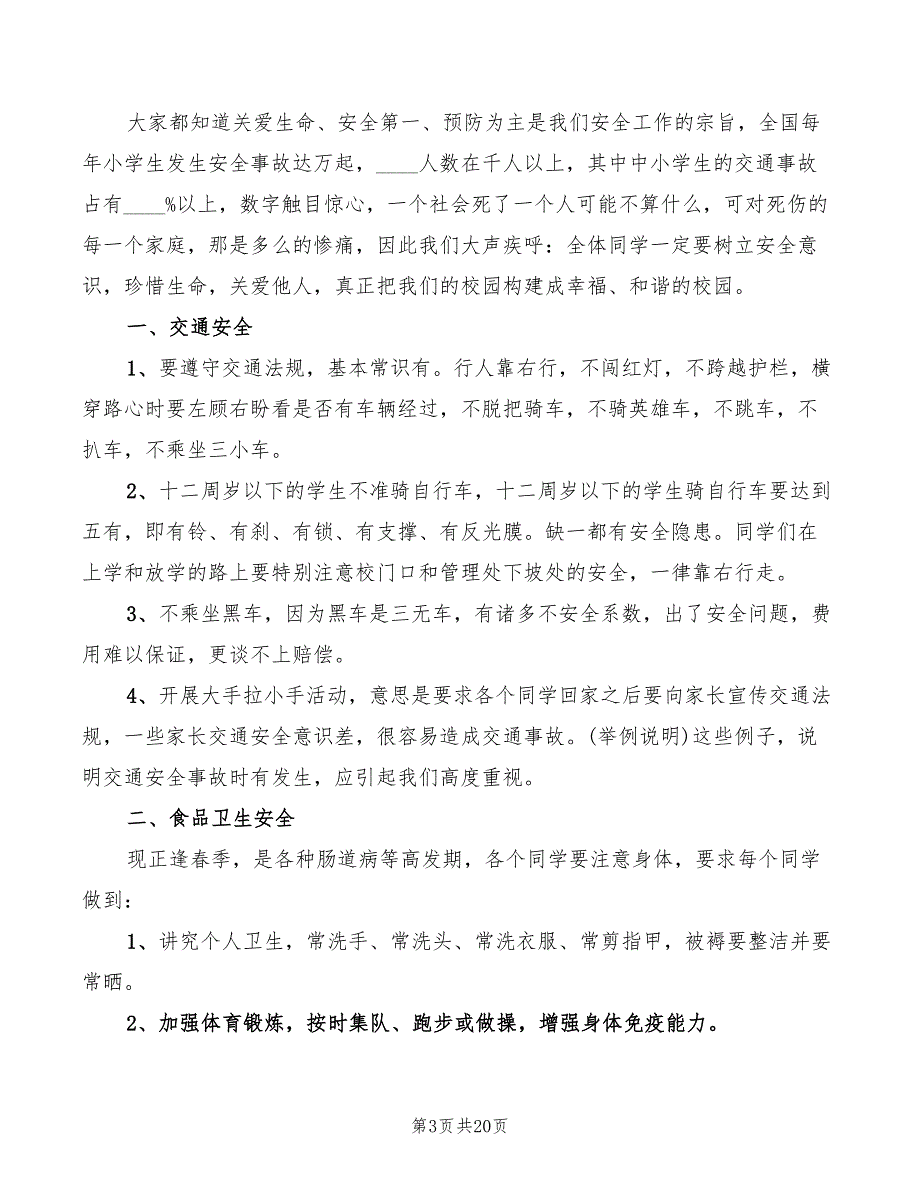 大家都知道关爱生命、安全第一、预防为主是我们安全工作的宗旨，全国每
年小学生发生安全事故达万起，____人数在千人以上，其中中小学生的交通事故
占有____%以上，数字触目惊心，一个社会死了一个人可能不算什么，可对死伤的
每一个家庭，那是多么的惨痛，因此我们大声疾呼：全体同学一定要树立安全意
识，珍惜生命，关爱他人，真正把我们的校园构建成幸福、和谐的校园。
一、交通安全
1、要遵守交通法规，基本常识有。行人靠右行，不闯红灯，不跨越护栏，横
穿路心时要左顾右盼看是否有车辆经过，不脱把骑车，不骑英雄车，不跳车，不
扒车，不乘坐三小车。
2、十二周岁以下的学生不准骑自行车，十二周岁以下的学生骑自行车要达到
五有，即有铃、有刹、有锁、有支撑、有反光膜。缺一都有安全隐患。同学们在
上学和放学的路上要特别注意校门口和管理处下坡处的安全，一律靠右行走。
3、不乘坐黑车，因为黑车是三无车，有诸多不安全系数，出了安全问题，费
用难以保证，更谈不上赔偿。
4、开展大手拉小手活动，意思是要求各个同学回家之后要向家长宣传交通法
规，一些家长交通安全意识差，很容易造成交通事故。(举例说明)这些例子，说
明交通安全事故时有发生，应引起我们高度重视。
二、食品卫生安全
现正逢春季，是各种肠道病等高发期，各个同学要注意身体，要求每个同学
做到：
1、讲究个人卫生，常洗手、常洗头、常洗衣服、常剪指甲，被褥要整洁并要
常晒。
2、加强体育锻炼，按时集队、跑步或做操，增强身体免疫能力。
第3页共20页